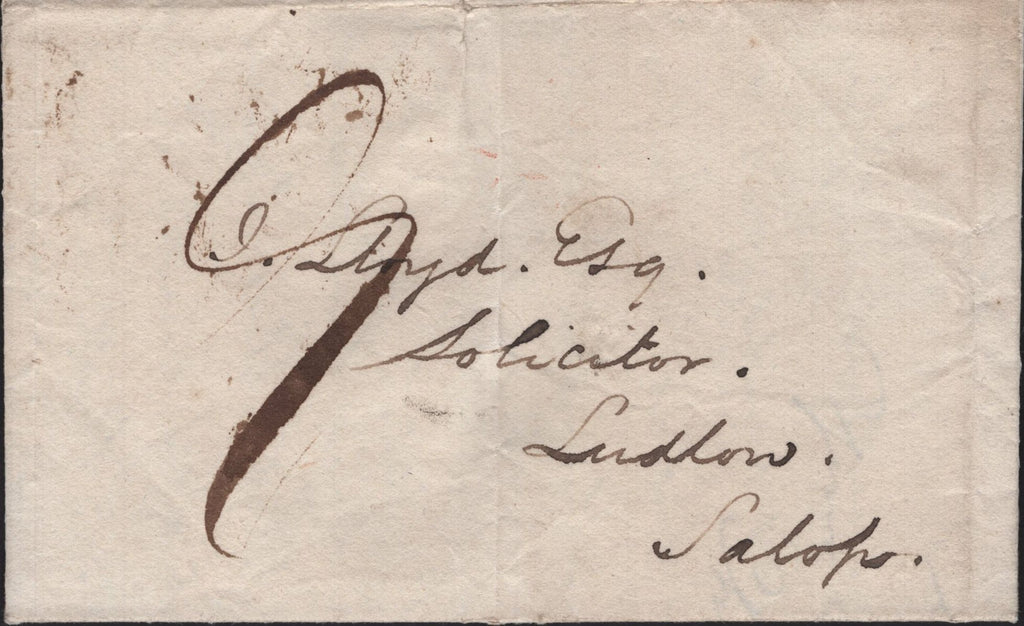 9
J. Lloyd. Esq.
Solicitor.
Ludlow.
Salop.